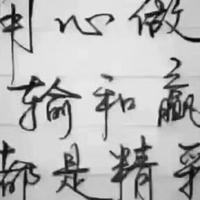 用心做
输和赢
都是精